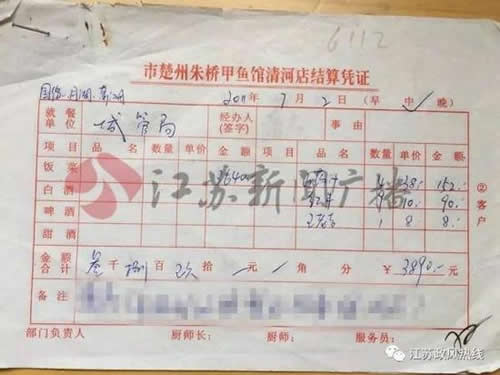 6112
市楚州朱桥甲鱼馆清河店结算凭证
2011年7月2日(早中✓晚)
就餐单位 城管局 经办人(签字) 事由
项目 品名 数量 单价 金额 项目 品名 数量 单价 金额
饭菜 3640 4 38.- 152.-
白酒 9 10.- 90.-
啤酒 王老吉 1 8.- 8.-
甜酒
②客户
金额合计 叁千捌百玖拾/元/角分 ¥3890.-元
备注
部门负责人 厨师长: 厨师: 服务员:
江苏新闻广播
江苏政风热线